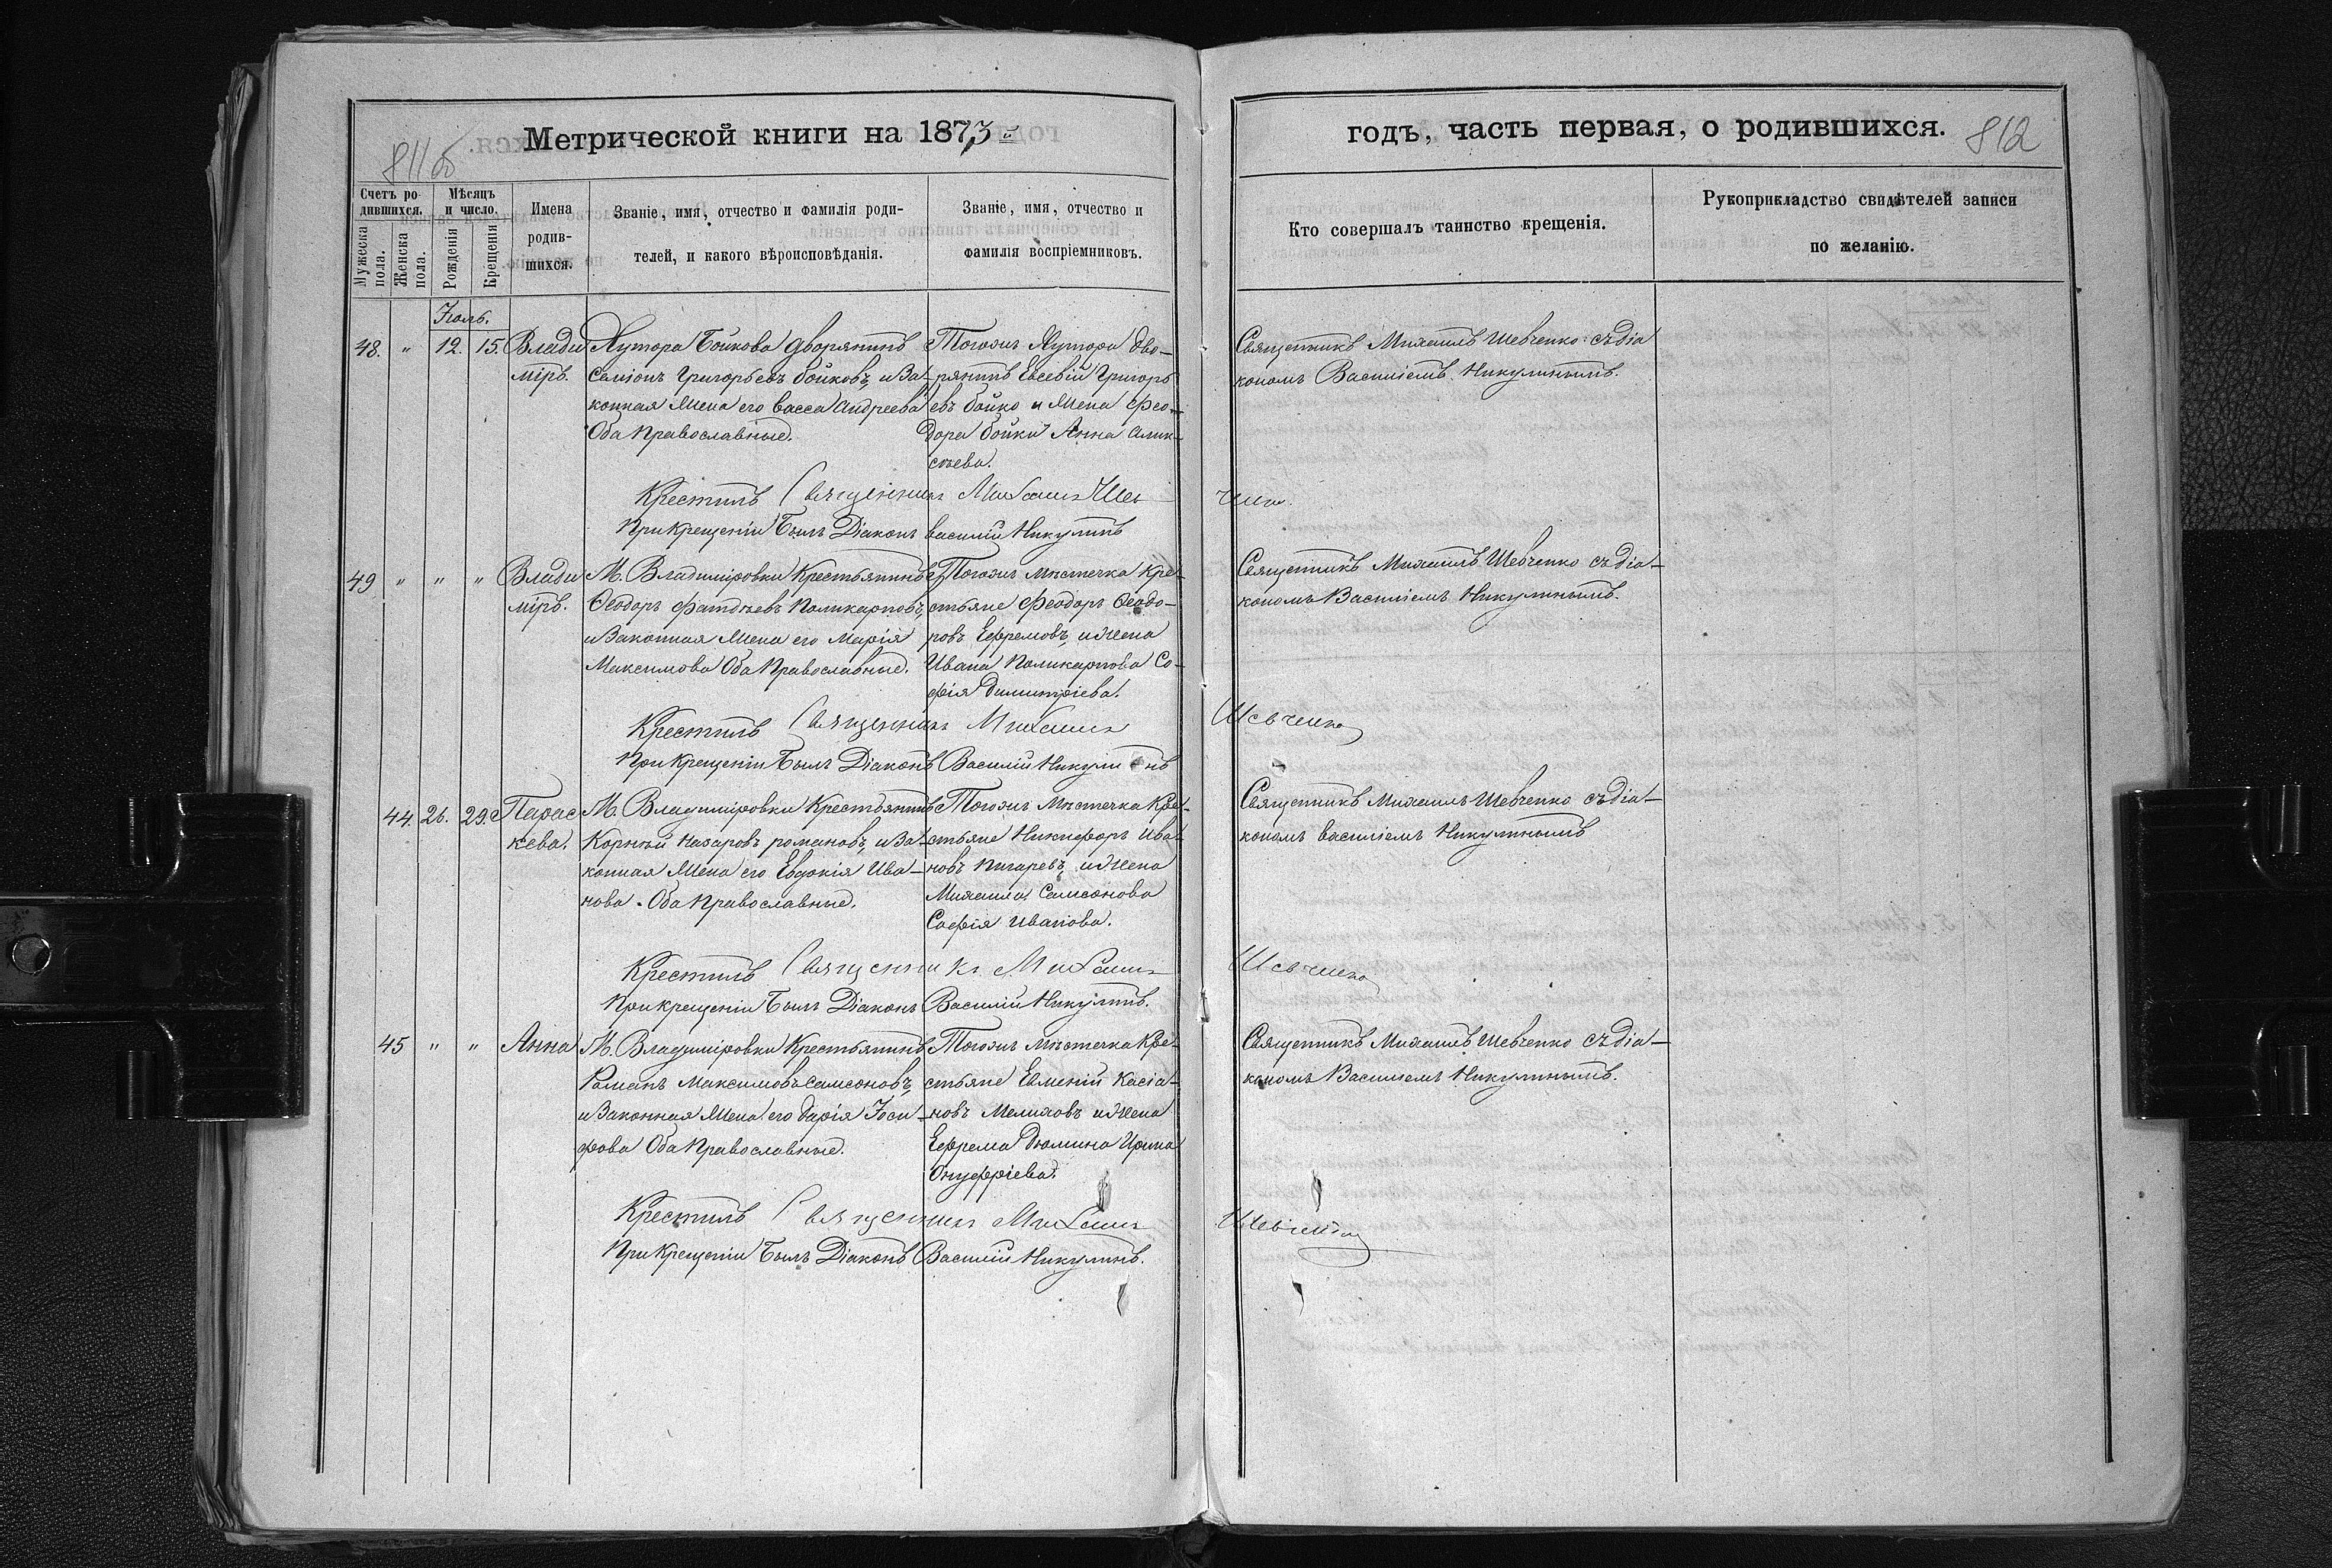 Метрической книги на 1873й
811об
годъ, часть первая, о родившихся.
812
Счетъ родившихся.
Мужеска пола.
Женска пола.
Мѣсяцъ и число.
Рожденія
Крещенія
Имена родившихся.
Званіе, имя, отчество и фамилія родителей, и какого вѣроисповѣданія.
Званіе, имя, отчество и фамилія воспріемниковъ.
Кто совершалъ таинство крещенія.
Рукоприкладство свидѣтелей записи по желанію.
Іюль.
48. " 12. 15. Влади
міръ.
Хутора Бойкова дворянинъ
Семіонъ Григорьевъ Бойковъ, и за-
конная жена его Васса Андреева
Оба Православные.
Тогожъ Хутора дво-
рянинъ Евсевій Григорь
евъ Бойко и жена Фео-
дора Бойки Анна Алик-
сѣева.
Священникъ Михаилъ Шевченко съ діа
кономъ Василіемъ Никулинымъ.
Крестилъ Священникъ Михаилъ Шев
ченко
При Крещеніи Былъ Діаконъ Василій Никулинъ
49 " " " Влади
міръ.
М. Владиміровки Крестьянинъ
Ѳеодоръ Фатдѣевъ Поликарповъ,
и Законная жена его Марія
Максимова Оба Православные.
Тогожъ Мѣстечка Кре-
стьяне Феодоръ Ѳеодо-
ровъ Ефремовъ, и жена
Ивана Поликарпова Со-
фія Димитріева.
Священникъ Михаилъ Шевченко съ діа-
кономъ Василіемъ Никулинымъ.
Крестилъ Священникъ Михаилъ
Шевченко
При Крещеніи Былъ Діаконъ Василій Никулинъ
44. 26. 29. Парас
кева.
М. Владиміровки Крестьянинъ
Корнѣй Назаровъ Романовъ, и за-
конная жена его Евдокія Ива-
нова. Оба Православные.
Тогожъ Мѣстечка Кре-
стьяне Никифоръ Ива-
новъ Пигаревъ, и жена
Михаила Самсонова
Софія Иванова.
Священникъ Михаилъ Шевченко съ діа-
кономъ Василіемъ Никулинымъ
Крестилъ Священникъ Михаилъ
Шевченко
При Крещеніи Былъ Діаконъ Василій Никулинъ.
45 " " Анна
М. Владиміровки Крестьянинъ
Романъ Максимовъ Самсоновъ,
и Законная жена его Дарія Іоси-
фова Оба Православные.
Тогожъ Мѣстечка Кре-
стьяне Евменій Касіа-
новъ Мелиховъ и жена
Ефрема Дюмина Ирина
Онуфріева.
Священникъ Михаилъ Шевченко съ діа-
кономъ Василіемъ Никулинымъ.
Крестилъ Священникъ Михаилъ
Шевченко
При Крещеніи Былъ Діаконъ Василій Никулинъ.